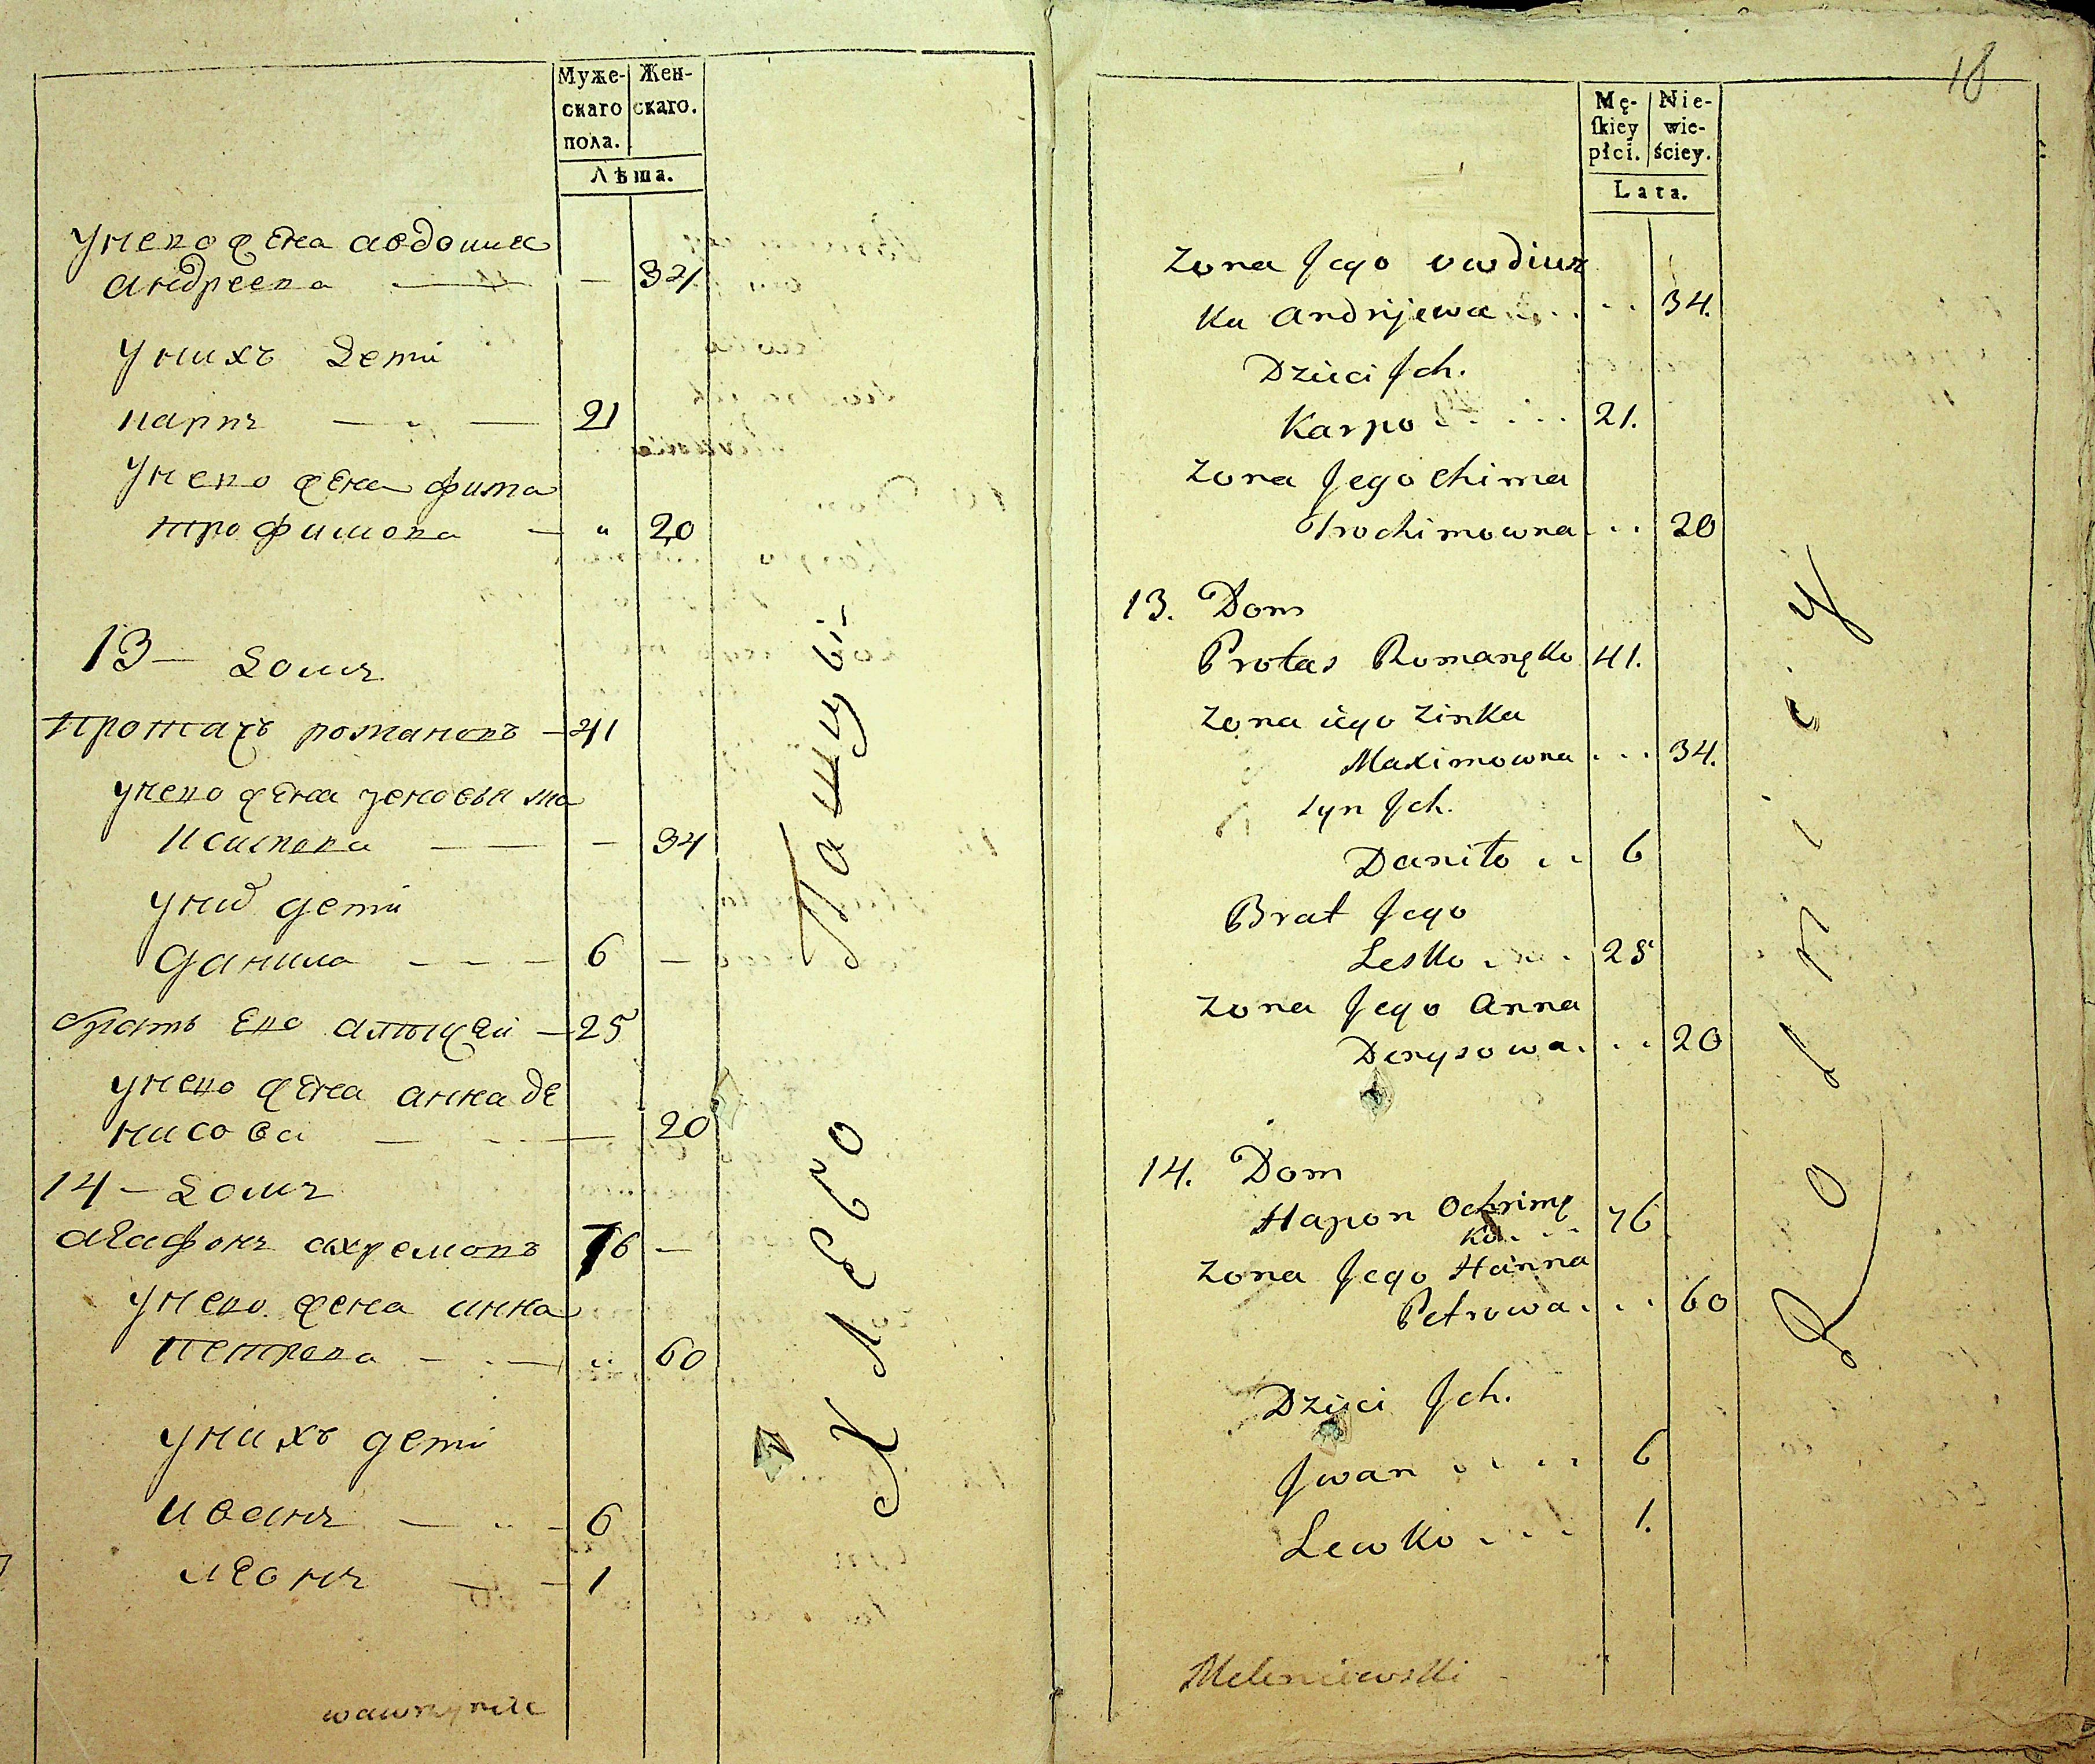 Муже-
скаго
пола.
Жен-
скаго.
Лѣта.
унего жена авдошка
андреева — — 34
унихъ дети
карпъ — — 21
унего жена фима
трофимова — " 20
13 — домъ
протасъ романовъ — 41
унего жена зеновья ма
ксимова — — — 34
унихъ дети
данила — — — 6 —
братъ его алѣксей — 25
унего жена анна де
нисова — — 20
14 — домъ
агафонъ ахремовъ 76 —
унего жена анна
петрова — — " 60
унихъ дети
иванъ — — 6
леонъ — — 1
Хлебо
Пашцы
wawrzyniec
18
Mę-
ſkiey
płci.
Nie-
wie-
ściey.
Lata.
Zona Jego owdiusz
Ka Andrijewa . . . . . 34.
Dzieci Jch.
Karpo . . . . 21.
Zona Jego Chima
Trochimowna . . . 20
13. Dom
Protas Romanęko 41.
Zona iego Zinka
Maximowna . . . 34.
Syn Jch.
Daniło . . 6
Brat Jego
Lesko . . . 25
Zona Jego Anna
Denysowa . . . 20
14. Dom
Hapon Ochrimę
ko . . . 76
Zona Jego Hanna
Petrowa . . . 60
Dzieci Jch.
Jwan . . . . 6
Lewko . . . 1.
Rolnicy
Meleniewski